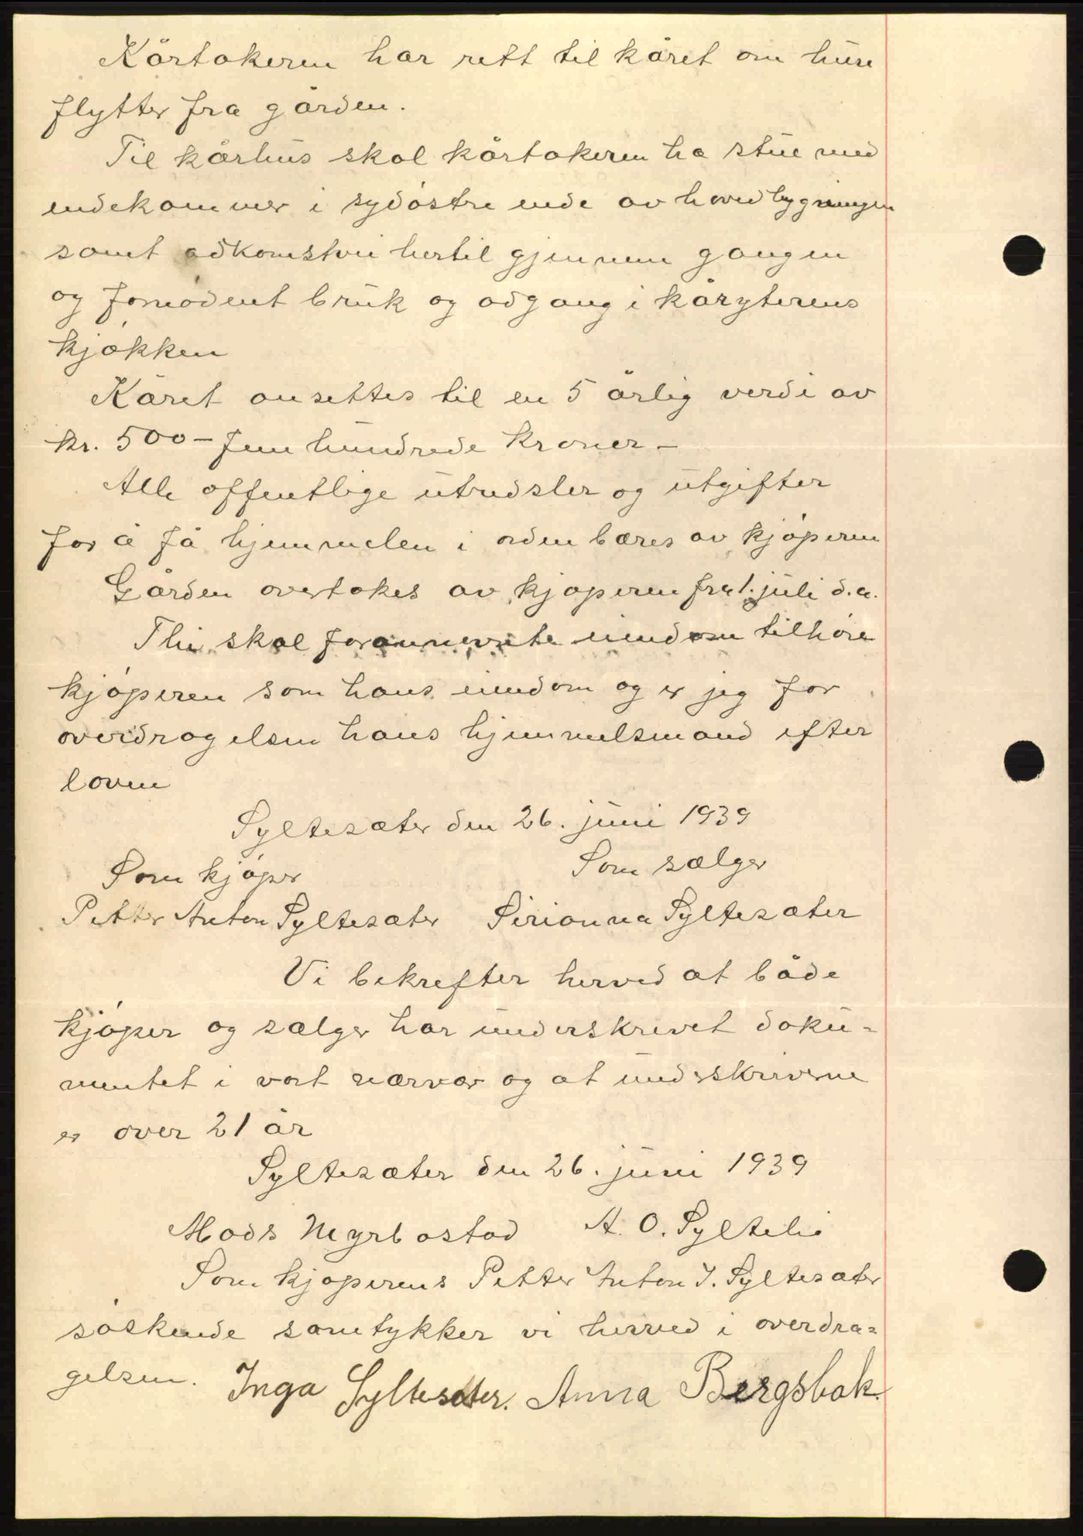 Kårtakeren har rett til kåret om hun
flytter fra gården.
Til kårhus skal kårtakeren ha stue med
endekammer i sydöstre ende av hovedbygningen
samt adkomstvei hertil gjennem gangen
og fornødent bruk og adgang i kåryterens
kjökken
Kåret ansettes til en 5 årlig verdi av
kr. 500 – fem hundrede kroner –
Alle offentlige utredsler og utgifter
for å få hjemmelen i orden bæres av kjöperen
Gården overtakes av kjøperen fra 1. juli d.a.
Thi skal forannevnte eiendom tilhöre
kjöperen som hans eiendom og er jeg for
overdragelsen hans hjemmelsmand efter
loven
Syltesæter den 26. juni 1939
Som kjöper Som sælger
Petter Anton Syltesæter Sirianna Syltesæter
Vi bekrefter herved at både
kjöper og sælger har underskrevet doku=
mentet i vort nærvær og at underskriverne
er over 21 år
Syltesæter den 26. juni 1939
Mads Myrbostad A. O. Syltelie
Som kjøperens Petter Anton I. Syltesæter
söskende samtykker vi herved i overdra=
gelsen. Inga Syltesæter. Anna Bergsbak.